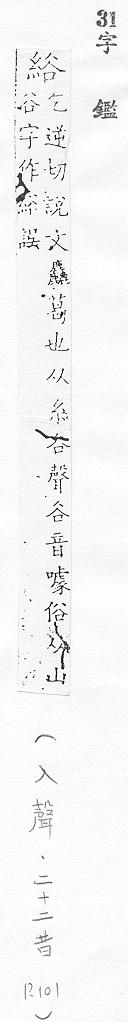 31字鑑
綌乞逆切說文麤葛也从糸谷聲谷音噱俗从山
谷字作綌誤
(入聲．二十二昔 P.101)